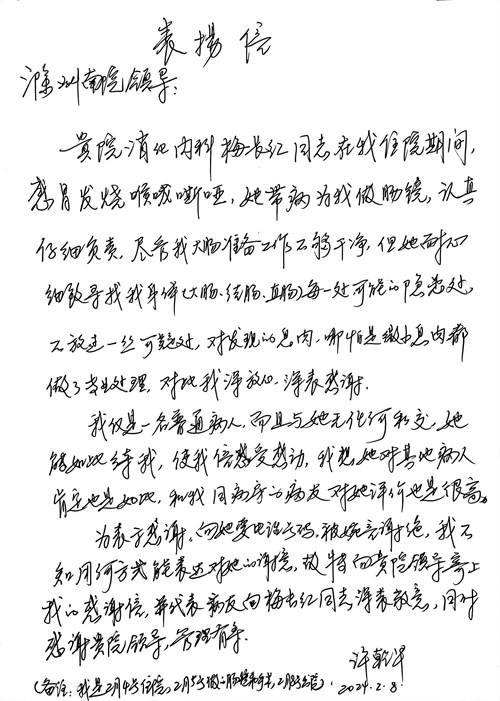 表揚信
滁州南院领导:
贵院消化内科梅长红同志在我住院期间,
感冒发烧喉咙嘶哑,她带病为我做肠镜,认真
仔细负责,尽管我大肠准备工作不够干净,但她耐心
细致寻找我身体(大肠、结肠、直肠)每一处可能的隐患处,
不放过一丝可疑处,对发现的息肉,哪怕是微小息肉都
做了专业处理,对此我深放心,深表感谢.
我仅是一名普通病人,而且与她无任何私交,她
能如此待我,使我倍感受感动,我想她对其他病人
肯定也是如此,和我同病房的病友对她评价也是很高。
为表示感谢,向她要电话号码,被婉言谢绝,我不
知用何方式能表达对她的谢意,故特向贵院领导寄上
我的感谢信,并代表病友向梅长红同志深表敬意,同时
感谢贵院领导,管理有方.
许乾
(备注:我是2月4号住院,2月5号做的肠镜和手术,2月8号出院).
2024.2.8.